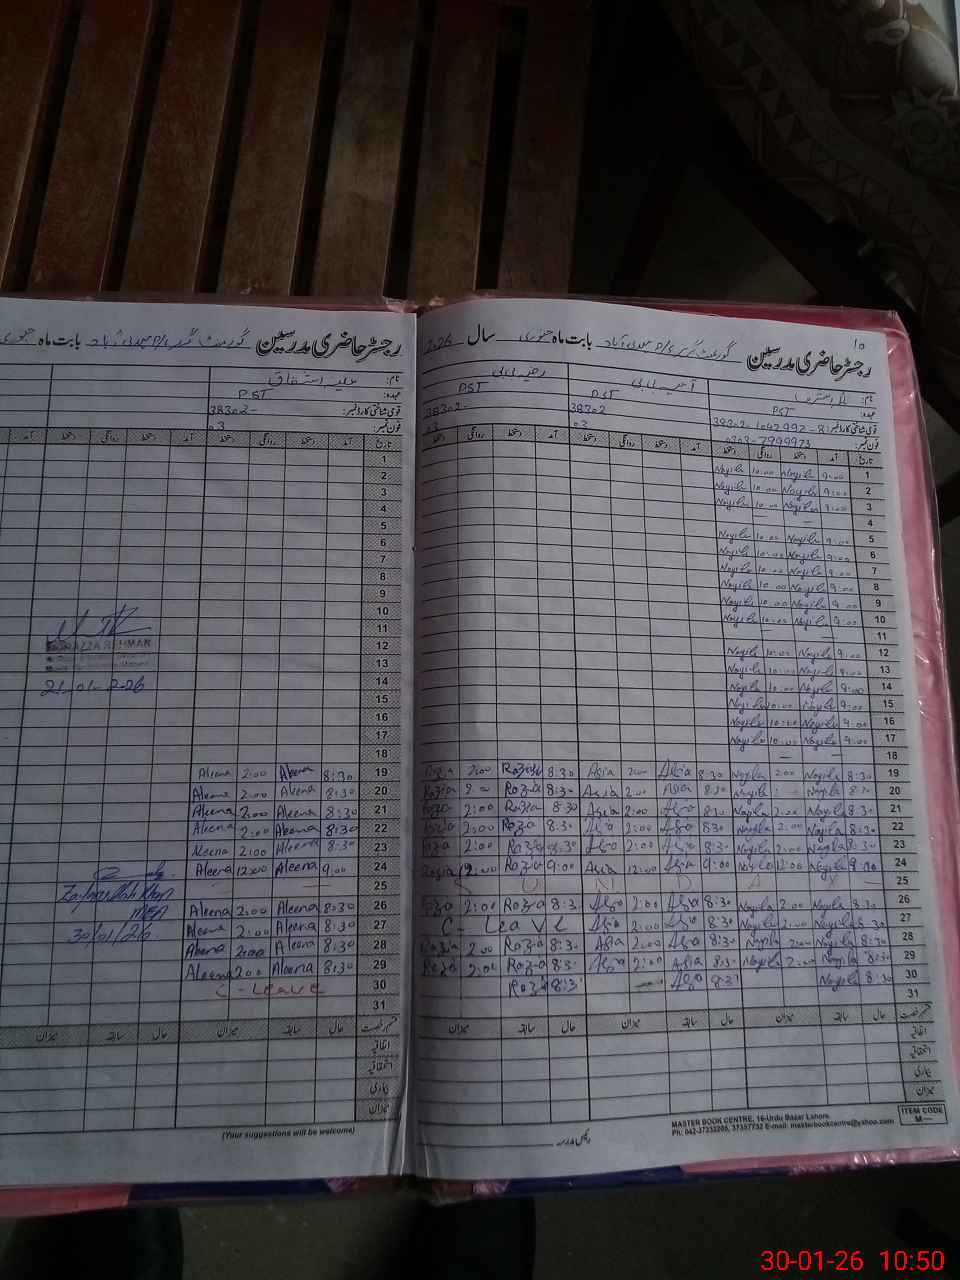 رجسٹر حاضری مدرسین گورنمنٹ گرلز P/S بابت ماہ جنوری سال 2026
10
نام:
عہدہ: PST
قومی شناختی کارڈ نمبر: 38302-1042992-8
فون نمبر: 0303-7999973
PST
38302
03
PST
38302-
03
تاریخ آمد دستخط روانگی دستخط آمد دستخط روانگی دستخط آمد دستخط روانگی دستخط
1 9:00 Nayila 10:00 Nayila
2 9:00 Nayila 10:00 Nayila
3 9:00 Nayila 10:00 Nayila
4 — —
5 9:00 Nayila 10:00 Nayila
6 9:00 Nayila 10:00 Nayila
7 9:00 Nayila 10:00 Nayila
8 9:00 Nayila 10:00 Nayila
9 9:00 Nayila 10:00 Nayila
10 9:00 Nayila 10:00 Nayila
11 — —
12 9:00 Nayila 10:00 Nayila
13 9:00 Nayila 10:00 Nayila
14 9:00 Nayila 10:00 Nayila
15 9:00 Nayila 10:00 Nayila
16 9:00 Nayila 10:00 Nayila
17 9:00 Nayila 10:00 Nayila
18 — —
19 8:30 Nayila 2:00 Nayla 8:30 Asia 2:00 Asia 8:30 Rozia 2:00 Rozia
20 8:30 Nayila Nayila 8:30 Asia 2:00 Asia 8:30 Rozia Rozia
21 8:30 Nayla 2:00 Nayla 8:30 2:00 Asia 8:30 Rozia 2:00
22 8:30 Nayla 2:00 Nayla 8:30 2:00 8:30 Rozia 2:00
23 8:30 Nayla 2:00 Nayla 8:30 2:00 8:30 Rozia 2:00
24 9:00 Nayla 12:00 Nayla 9:00 12:00 Asia 9:00 Rozia 12:00 Rozia
25 S U N D A Y
26 8:30 Nayla 2:00 Nayila 8:30 2:00 8:30 Rozia 2:00
27 8:30 Nayla 2:00 Nayla 8:30 2:00 C- Leave
28 8:30 Nayla 2:00 Nayla 8:30 2:00 Asia 8:30 Rozia 2:00 Rozia
29 8:30 Nayla 2:00 Nayla 8:30 Asia 2:00 8:30 Rozia 2:00
30 8:30 Nayla 8:30 8:30 Rozia
31
قسم رخصت حال سابقہ میزان حال سابقہ میزان حال سابقہ میزان
اتفاقیہ
استحقاقیہ
بیماری
میزان
رئیس مدرسہ
MASTER BOOK CENTRE, 16-Urdu Bazar Lahore.
Ph: 042-37232205, 37357732 E-mail: masterbookcentre@yahoo.com
ITEM CODE
M—
رجسٹر حاضری مدرسین گورنمنٹ P/S بابت ماہ جنوری
نام: علینہ اشفاق
عہدہ: PST
قومی شناختی کارڈ نمبر: 38302-
فون نمبر: 03
تاریخ آمد دستخط روانگی دستخط آمد دستخط روانگی دستخط آمد
1
2
3
4
5
6
7
8
9
10
11
12
13
14
15
16
17
18
19 8:30 Aleena 2:00 Aleena
20 8:30 Aleena 2:00 Aleena
21 8:30 Aleena 2:00 Aleena
22 8:30 Aleena 2:00 Aleena
23 8:30 Aleena 2:00 Aleena
24 9:00 Aleena 12:00 Aleena
25 — — —
26 8:30 Aleena 2:00 Aleena
27 8:30 Aleena 2:00 Aleena
28 8:30 Aleena 2:00 Aleena
29 8:30 Aleena 2:00 Aleena
30 C - Leave
31
REHMAN
21-01-2026
Khan
MEA
30/01/26
قسم رخصت حال سابقہ میزان حال سابقہ میزان
اتفاقیہ
استحقاقیہ
بیماری
میزان
(Your suggestions will be welcome)
30-01-26 10:50